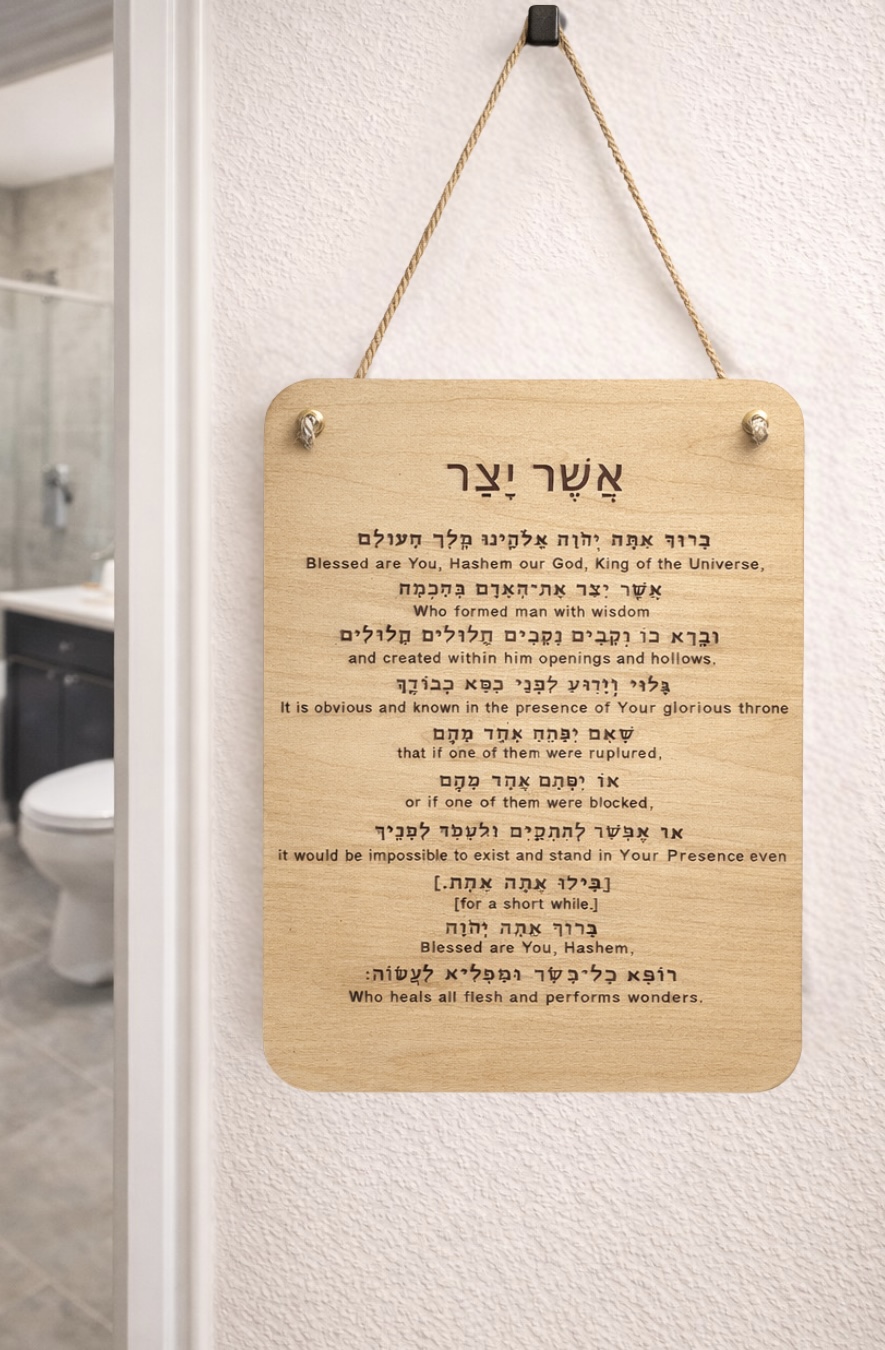 אֲשֶׁר יָצַר
בָּרוּךְ אַתָּה יְהֹוָה אֱלֹהֵינוּ מֶלֶךְ הָעוֹלָם
Blessed are You, Hashem our God, King of the Universe,
אֲשֶׁר יָצַר אֶת־הָאָדָם בְּהָכְמָה
Who formed man with wisdom
וּבָרָא בוֹ נְקָבִים נְקָבִים חֲלוּלִים חֲלוּלִים
and created within him openings and hollows.
גָּלוּי וְיָדוּעַ לִפְנֵי כִסֵּא כְבוֹדֶךָ
It is obvious and known in the presence of Your glorious throne
שֶׁאִם יִפָּתֵחַ אֶחָד מֵהֶם
that if one of them were ruplured,
אוֹ יִסָּתֵם אֶהָד מֵהֶם
or if one of them were blocked,
אוּ אֶפְשַׁר לְהִתְקַיֵּם וְלַעֲמֹד לְפָנֶיךָ
it would be impossible to exist and stand in Your Presence even
[for a short while.]
בָּרוּךְ אַתָּה יְהֹוָה
Blessed are You, Hashem,
רוֹפֵא כָל־בָּשָׂר וּמַפְלִיא לַעֲשׂוֹה:
Who heals all flesh and performs wonders.